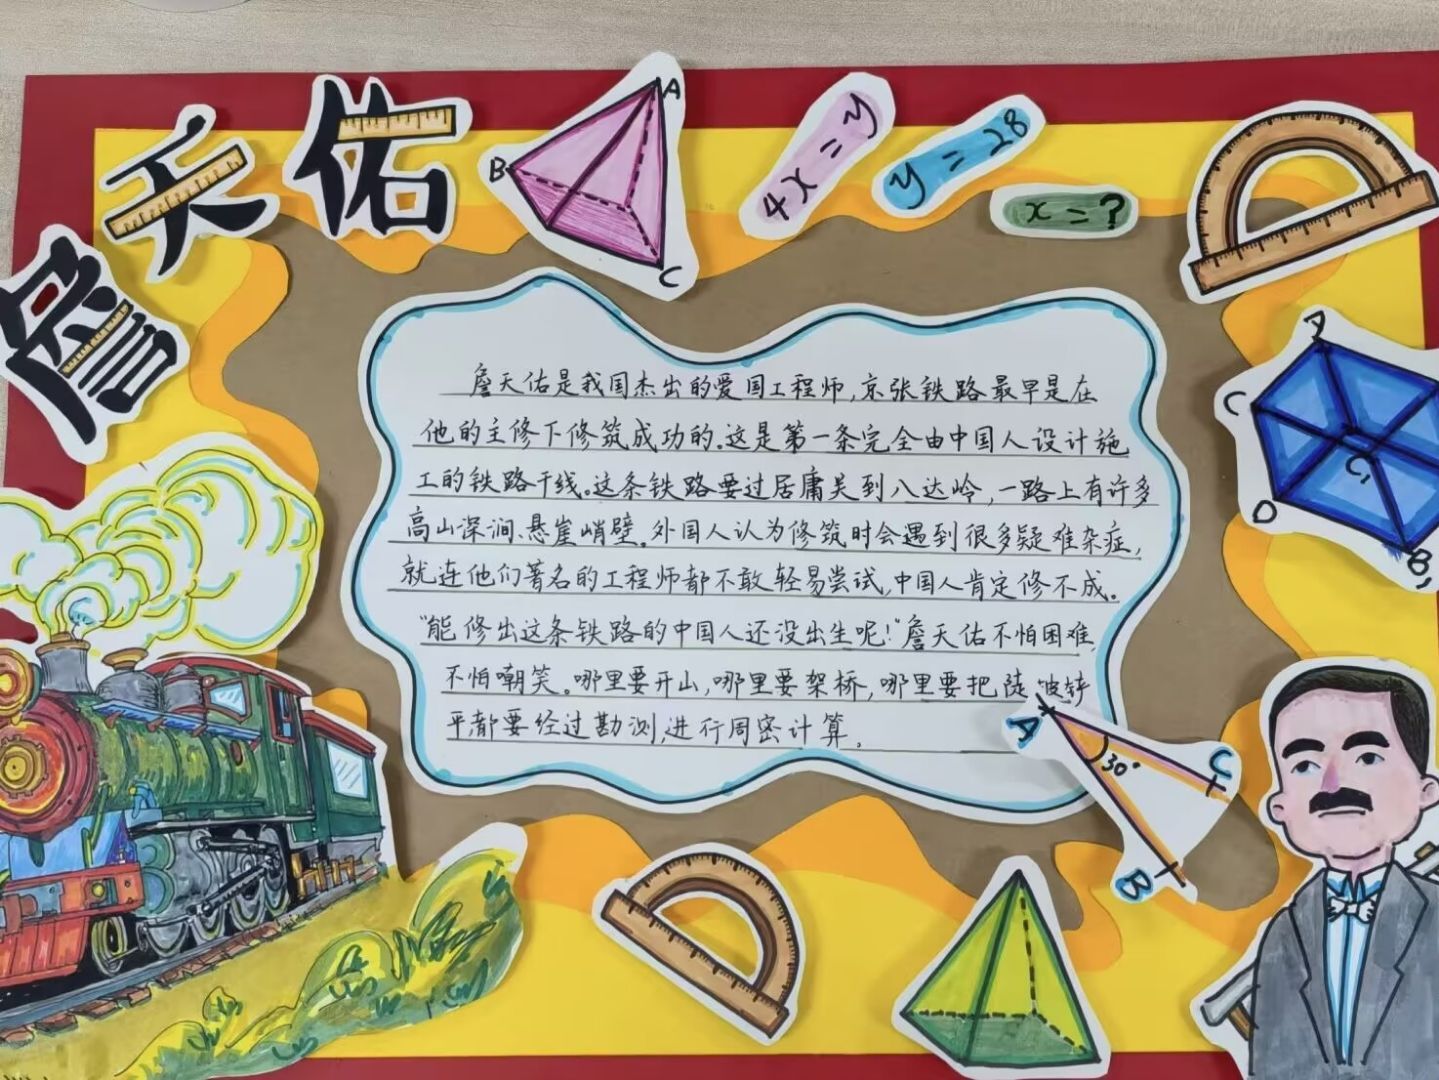 詹天佑
A
B
C
4x=y
y=28
x=?
詹天佑是我国杰出的爱国工程师,京张铁路最早是在
他的主修下修筑成功的。这是第一条完全由中国人设计施
工的铁路干线。这条铁路要过居庸关到八达岭,一路上有许多
高山深涧、悬崖峭壁。外国人认为修筑时会遇到很多疑难杂症,
就连他们著名的工程师都不敢轻易尝试,中国人肯定修不成。
"能修出这条铁路的中国人还没出生呢!"詹天佑不怕困难,
不怕嘲笑。哪里要开山,哪里要架桥,哪里要把陡坡铲
平,都要经过勘测,进行周密计算。
C
D
B
A
30°
C
B